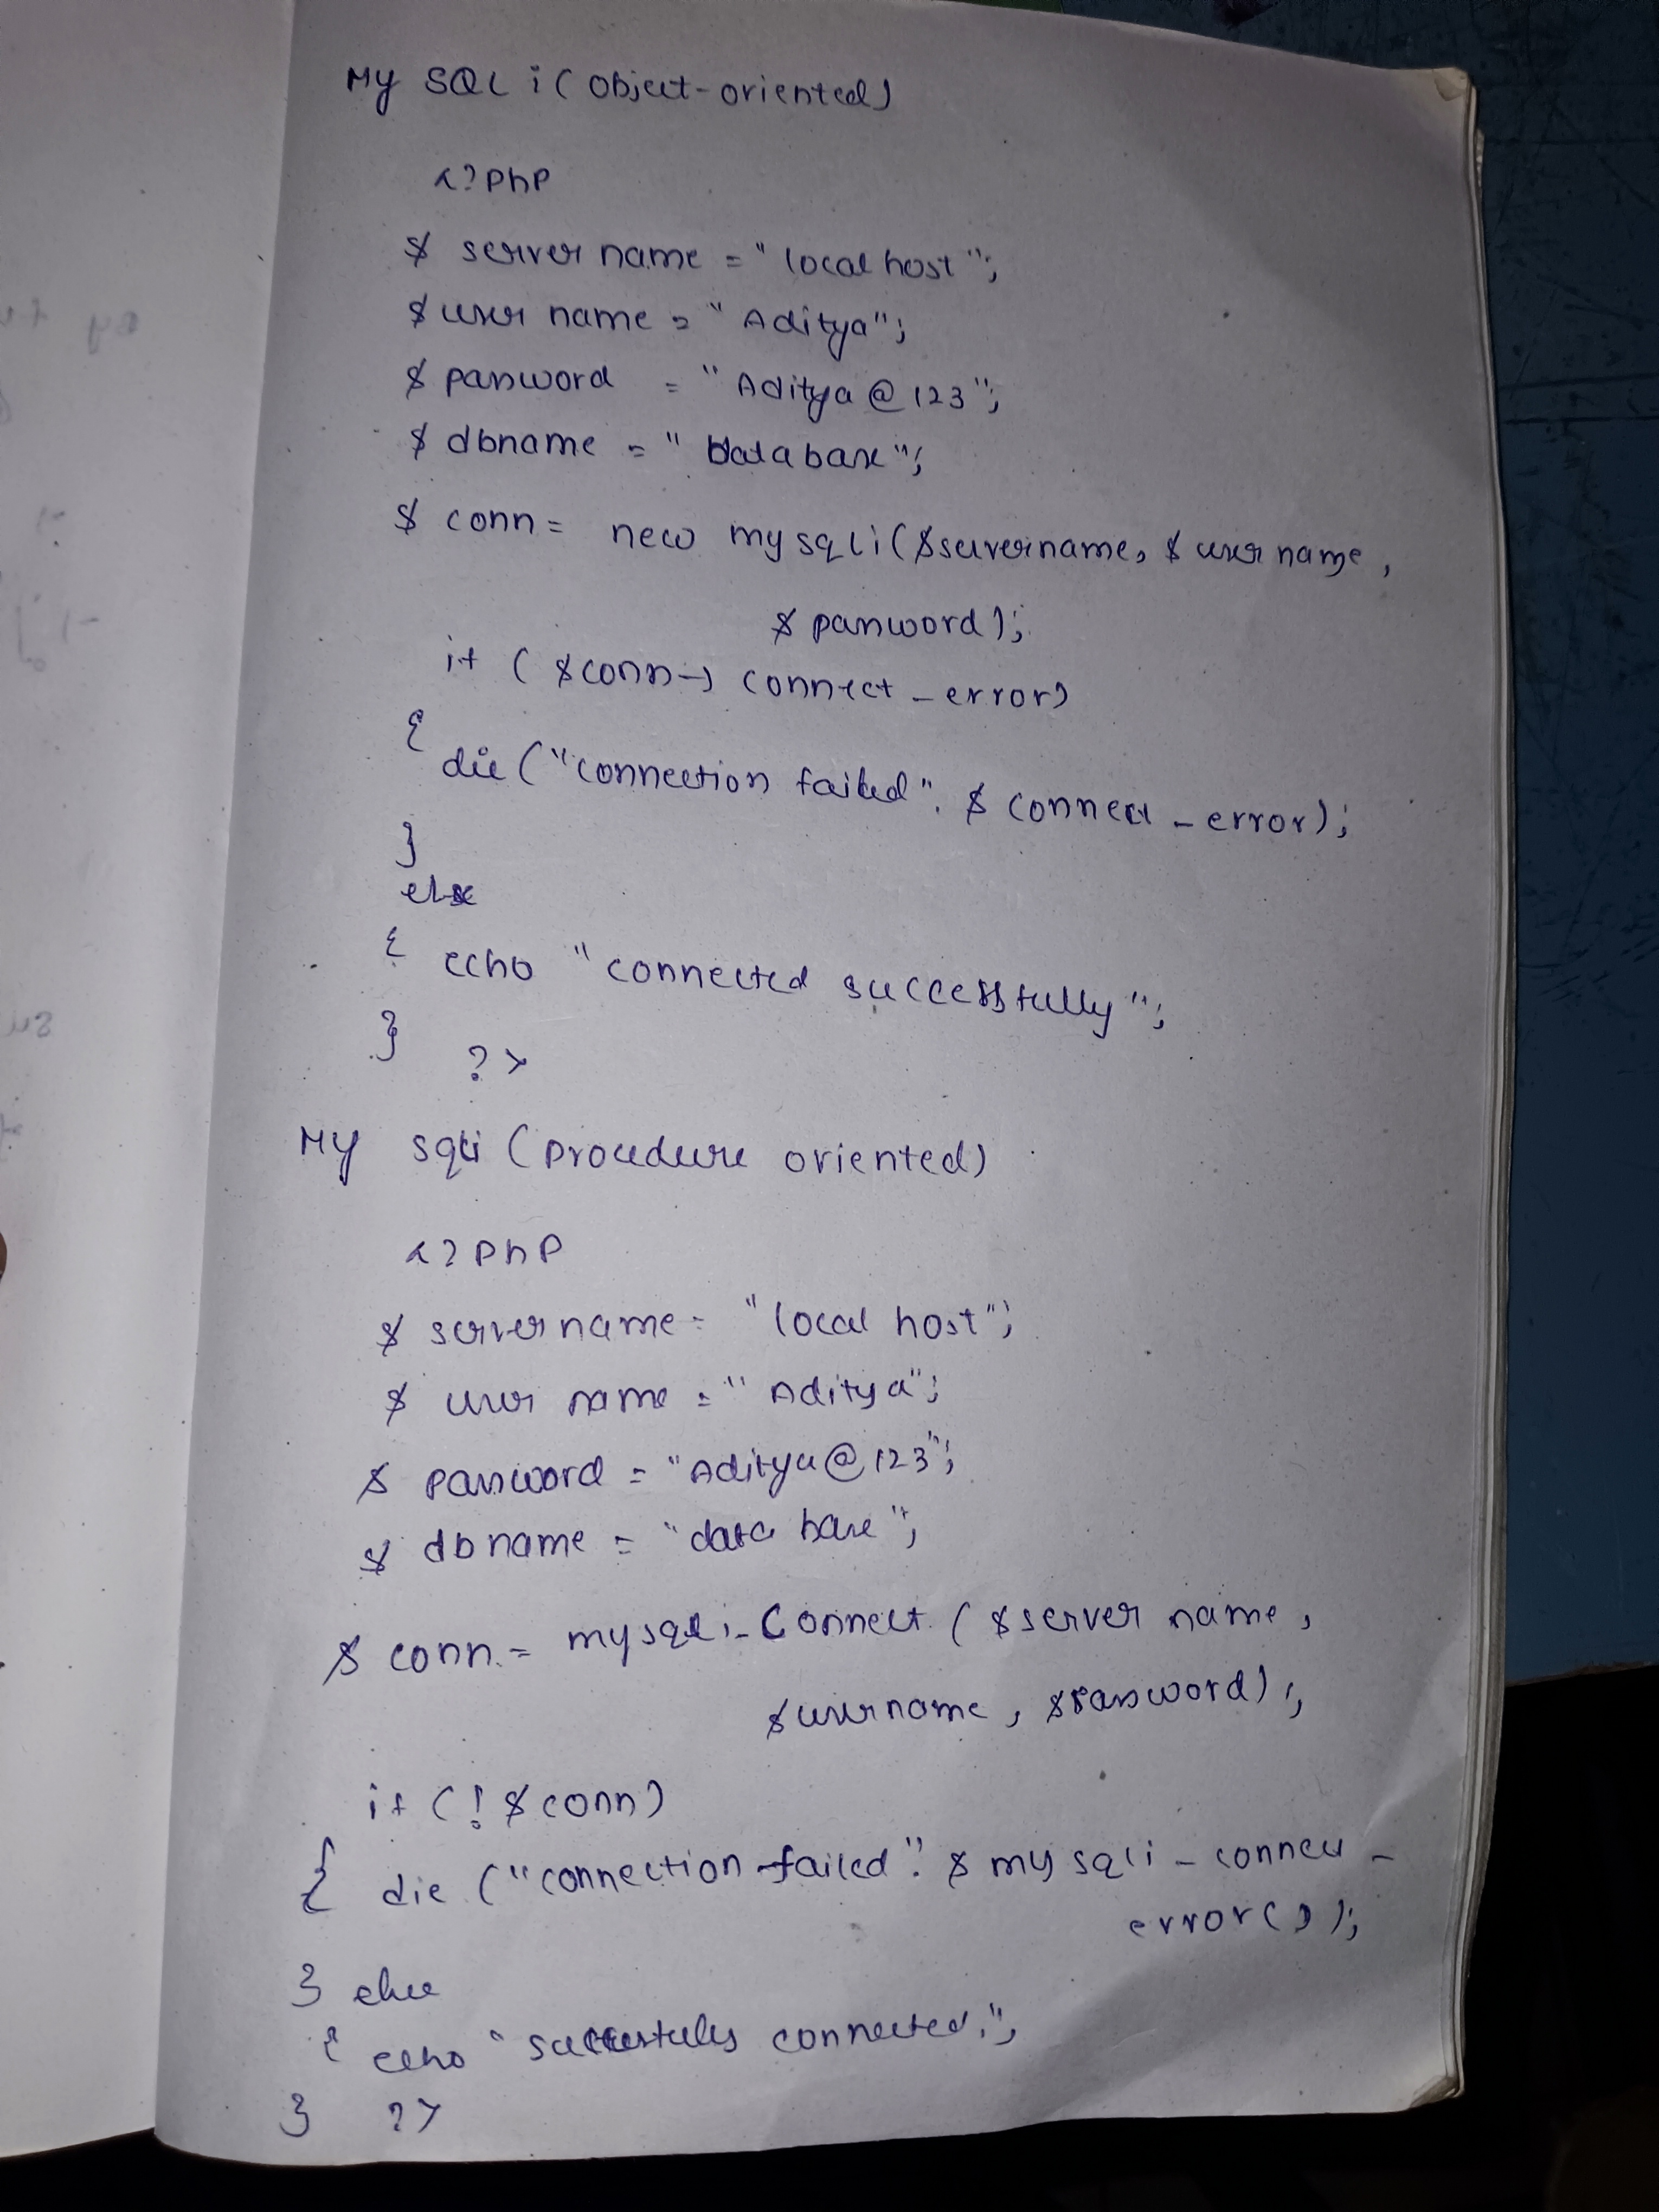 My SQL i (Object-oriented)
<?PhP
$ server name = "local host";
$ user name = "Aditya";
$ password = "Aditya @ 123";
$ dbname = "database";
$ conn = new my sqli ($servername, $ user name,
$ password);
if ($conn→ connect_error)
{
die ("connection failed". $ connect_error);
}
else
{ echo "connected successfully";
}
?>
My sqli (procedure oriented)
<? PhP
$ server name = "local host";
$ user name = "Aditya";
$ password = "Aditya@123";
$ db name = "data base";
$ conn = mysqli_Connect ($server name,
$username, $password);
if (! $conn)
{ die ("connection failed". $ my sqli_connect_
error());
} else
{ echo "successfully connected.";
} ?>